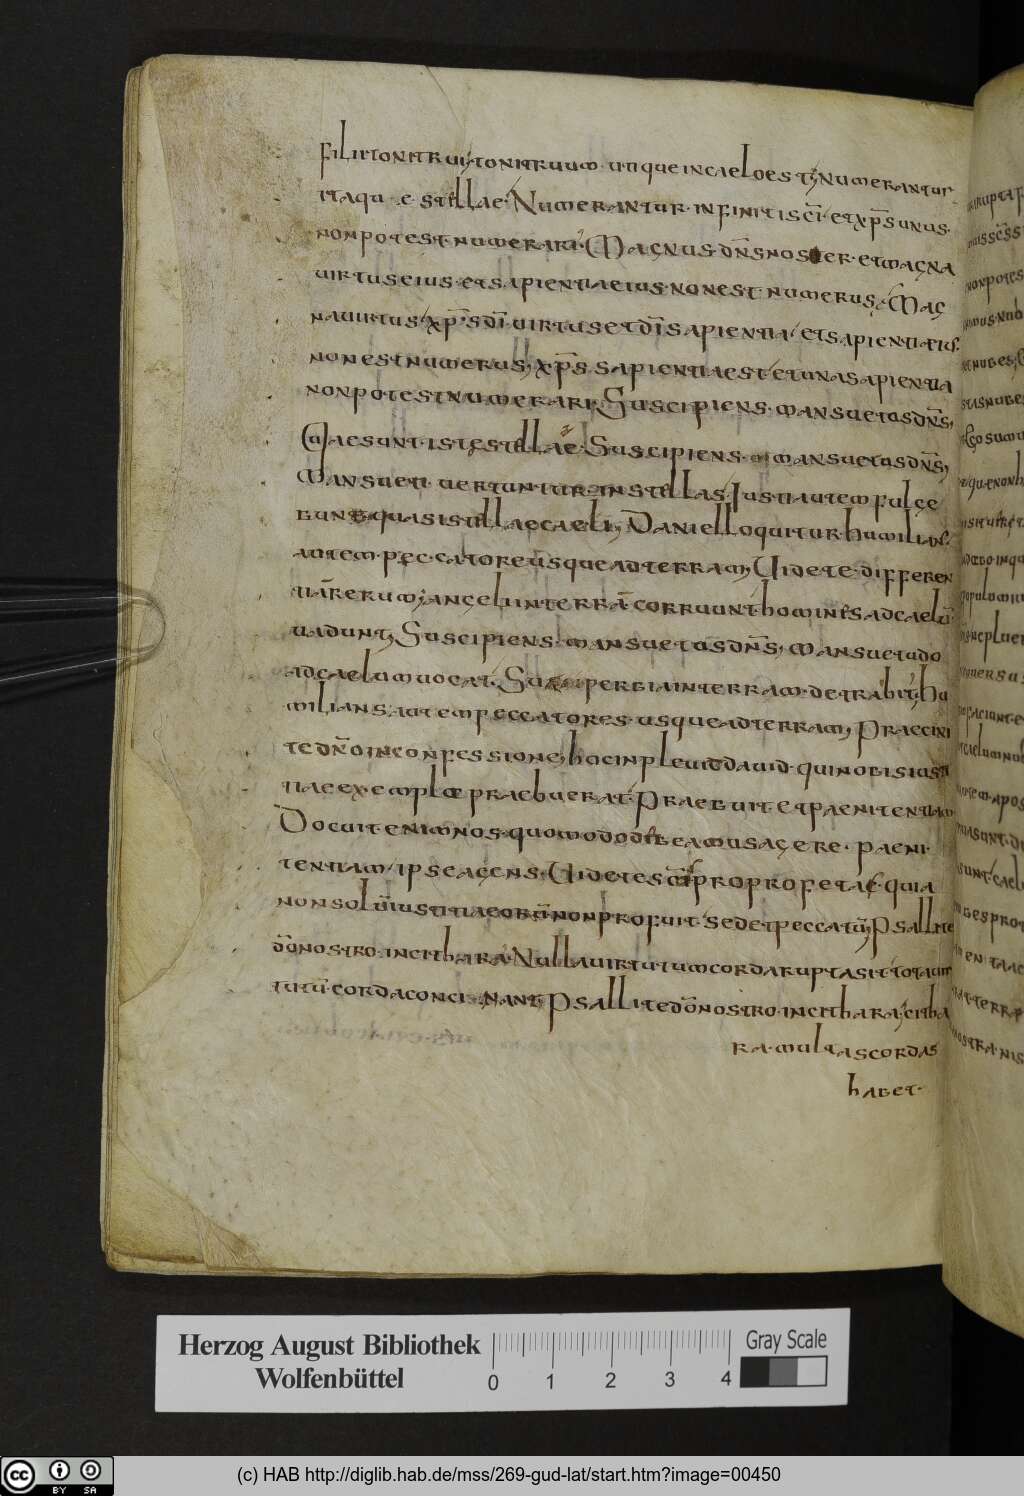 filii tonitrui; tonitruum utique in caelo est; numerantur
itaque stillae. Numerantur infiniti sc̄i. et xp̄s unus.
non potest numerari. Magnus dn̄s noster et magna
uirtus eius et sapientiae eius non est numerus. Mag
na uirtus xp̄s dī uirtus et dī sapientia et sapientiae eius
non est numerus; xp̄s sapientia est et una sapientia
non potest numerari. Suscipiens mansuetos dn̄s;
Quae sunt istae stillae. Suscipiens mansuetos dn̄s;
Mansueti uertuntur in stellas. Iusti autem fulge
bunt quasi stillae caeli; Daniel loquitur. humilians
autem peccatores usque ad terram; Uidete differen
tiā rerum; angeli in terrā corruunt. homines ad caelū
uadunt; Suscipiens mansuetos dn̄s; mansuetudo
ad caelum uocat. Superbia in terram detrahit. hu
milians autem peccatores usque ad terram; Praecini
te dn̄o in confessione; hoc in pleui dauid qui nobis iusti
tiae exemplo praebuerat. Praebuit et paenitentiam
Docuit enim nos quomodo debeamus agere paeni
tentiam ipse agens. Uidete sc̄i pro profetae quia
non solū iustitia eorū non profuit sed et peccatū; Psallite
dō nostro in cithara. Nulla uirtutum corda rupta sit. tota uir
tutū corda concinant. Psallite dō nostro in cithara; citha
ra multas cordas
habet.
Herzog August Bibliothek
Wolfenbüttel
0 1 2 3 4
Gray Scale
(c) HAB http://diglib.hab.de/mss/269-gud-lat/start.htm?image=00450
cc BY SA